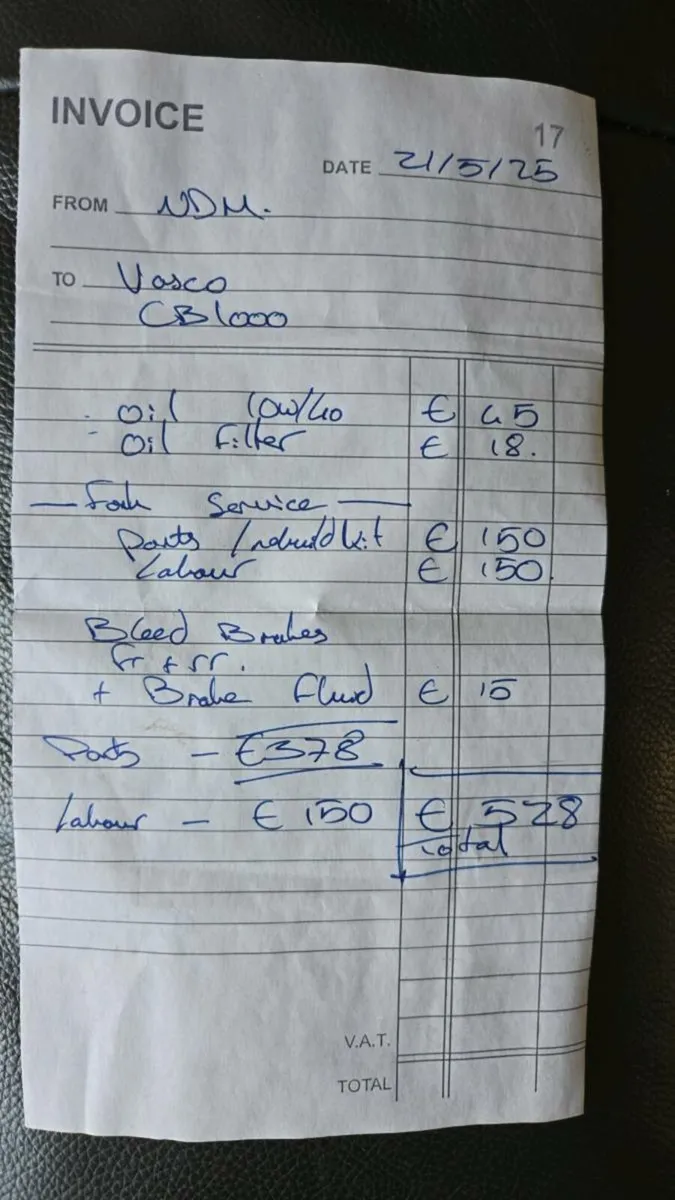 INVOICE
17
DATE 21/5/25
FROM NDM.
TO Vasco
CB1000
- Oil 10w/40 € 45
- Oil Filter € 18.
— Fork Service —
Parts / rebuild kit € 150
Labour € 150
Bleed Brakes
Fr + rr.
+ Brake Fluid € 15
Parts - €378
Labour - € 150 € 528
Total
V.A.T.
TOTAL